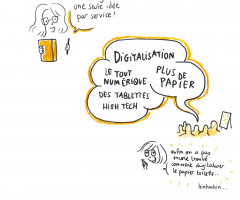 une seule idée
par service !
DIGITALISATION
LE TOUT
NUMÉRIQUE
PLUS DE
PAPIER
DES TABLETTES
HIGH TECH
enfin on a pas
encore trouvé
comment digitaliser
le papier toilette...
hinhinhin...